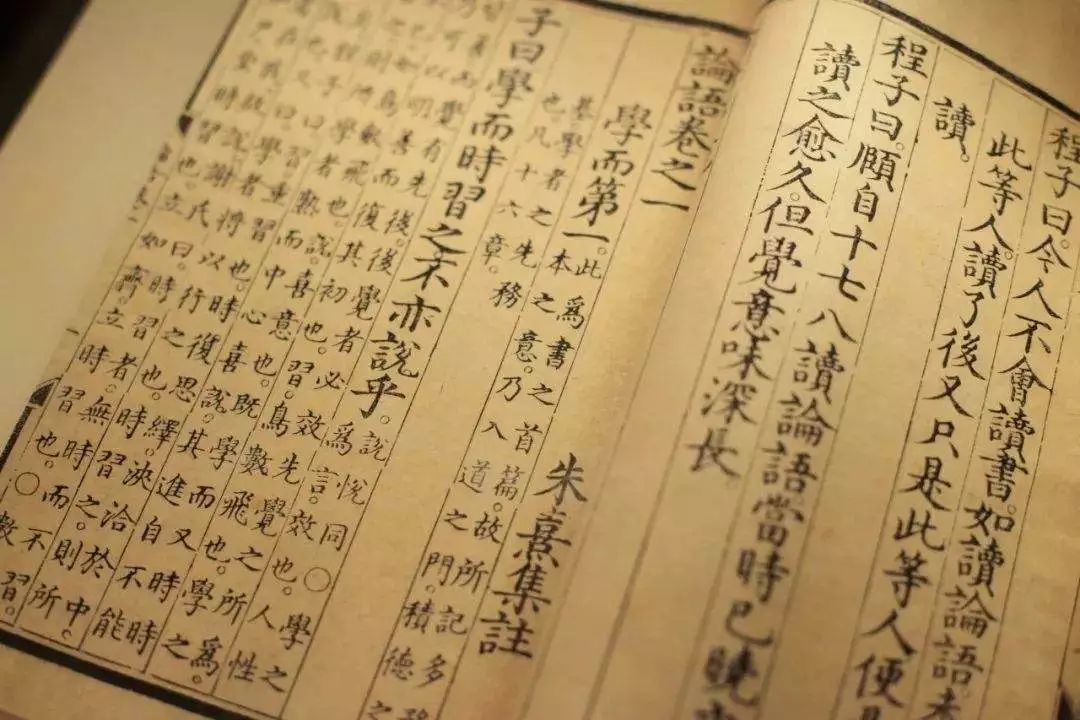 程子曰。今人不會讀書。如讀論語
此等人。讀了後又只是此等人便
讀。
程子曰。頤自十七八讀論語當時已曉
讀之愈久。但覺意味深長
論語卷之一　朱熹集註
學而第一。此為書之首篇。故所記多
本之意。乃入道之門。積德之
基。學者之先務
也。凡十六章。
子曰學而時習之不亦說乎。說悅同○學之
為言。效也。人性
善而覺有先後。後覺者必效先覺之所為。
乃可以明善而復其初也。習鳥數飛也。學之
已。如鳥數飛也。說。喜意也。既學而又時時
則所學者熟。而中心喜說。其進自不能
子曰。習。重習也。時復思繹。浹洽於中。
也。又曰。學者將以行之也。時習之。則所
在我。故說。謝氏曰。時習者。無時而不習。
尸。坐時習也。立如齊。立時習也。○